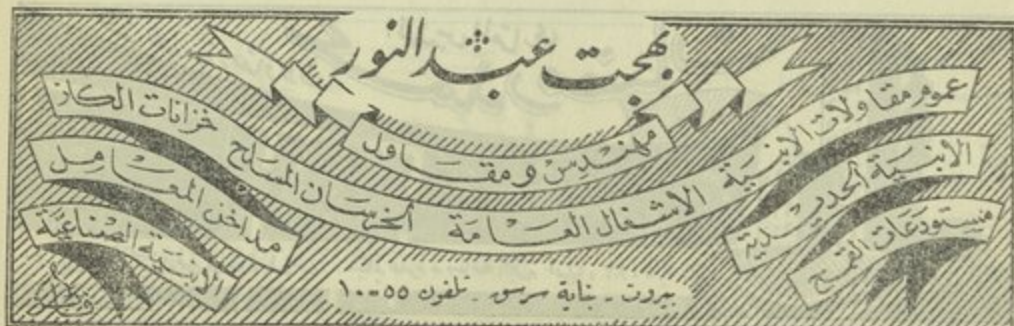 بهجت عبد النور
مهندس ومقاول
عموم مقاولات الابنية الاشغال العامة الخرسان المسلح خزانات الكاز
الابنية الحديدية
مستودعات القمح
مداخن المعامل
الابنية الصناعية
بيروت - بناية سرسق - تلفون ٥٥-١٠